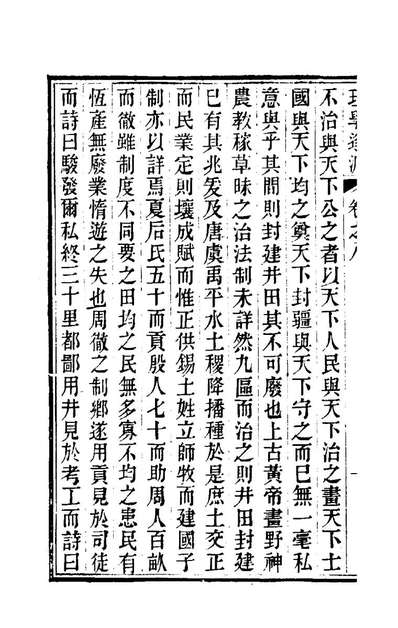 卷之八
不治與天下公之者以天下人民與天下治之畫天下土
國與天下均之奠天下封疆與天下守之而已無一毫私
意與乎其間則封建井田其不可廢也上古黃帝畫野神
農教稼草昧之治法制未詳然九區而治之則井田封建
已有其兆爰及唐虞禹平水土稷降播種於是庶土交正
而民業定則壤成賦而惟正供錫土姓立師牧而建國子
制亦以詳焉夏后氏五十而貢殷人七十而助周人百畝
而徹雖制度不同要之田均之民無多寡不均之患民有
恆產無廢業惰遊之失也周徹之制鄉遂用貢見於司徒
而詩曰駿發爾私終三十里都鄙用井見於考工而詩曰